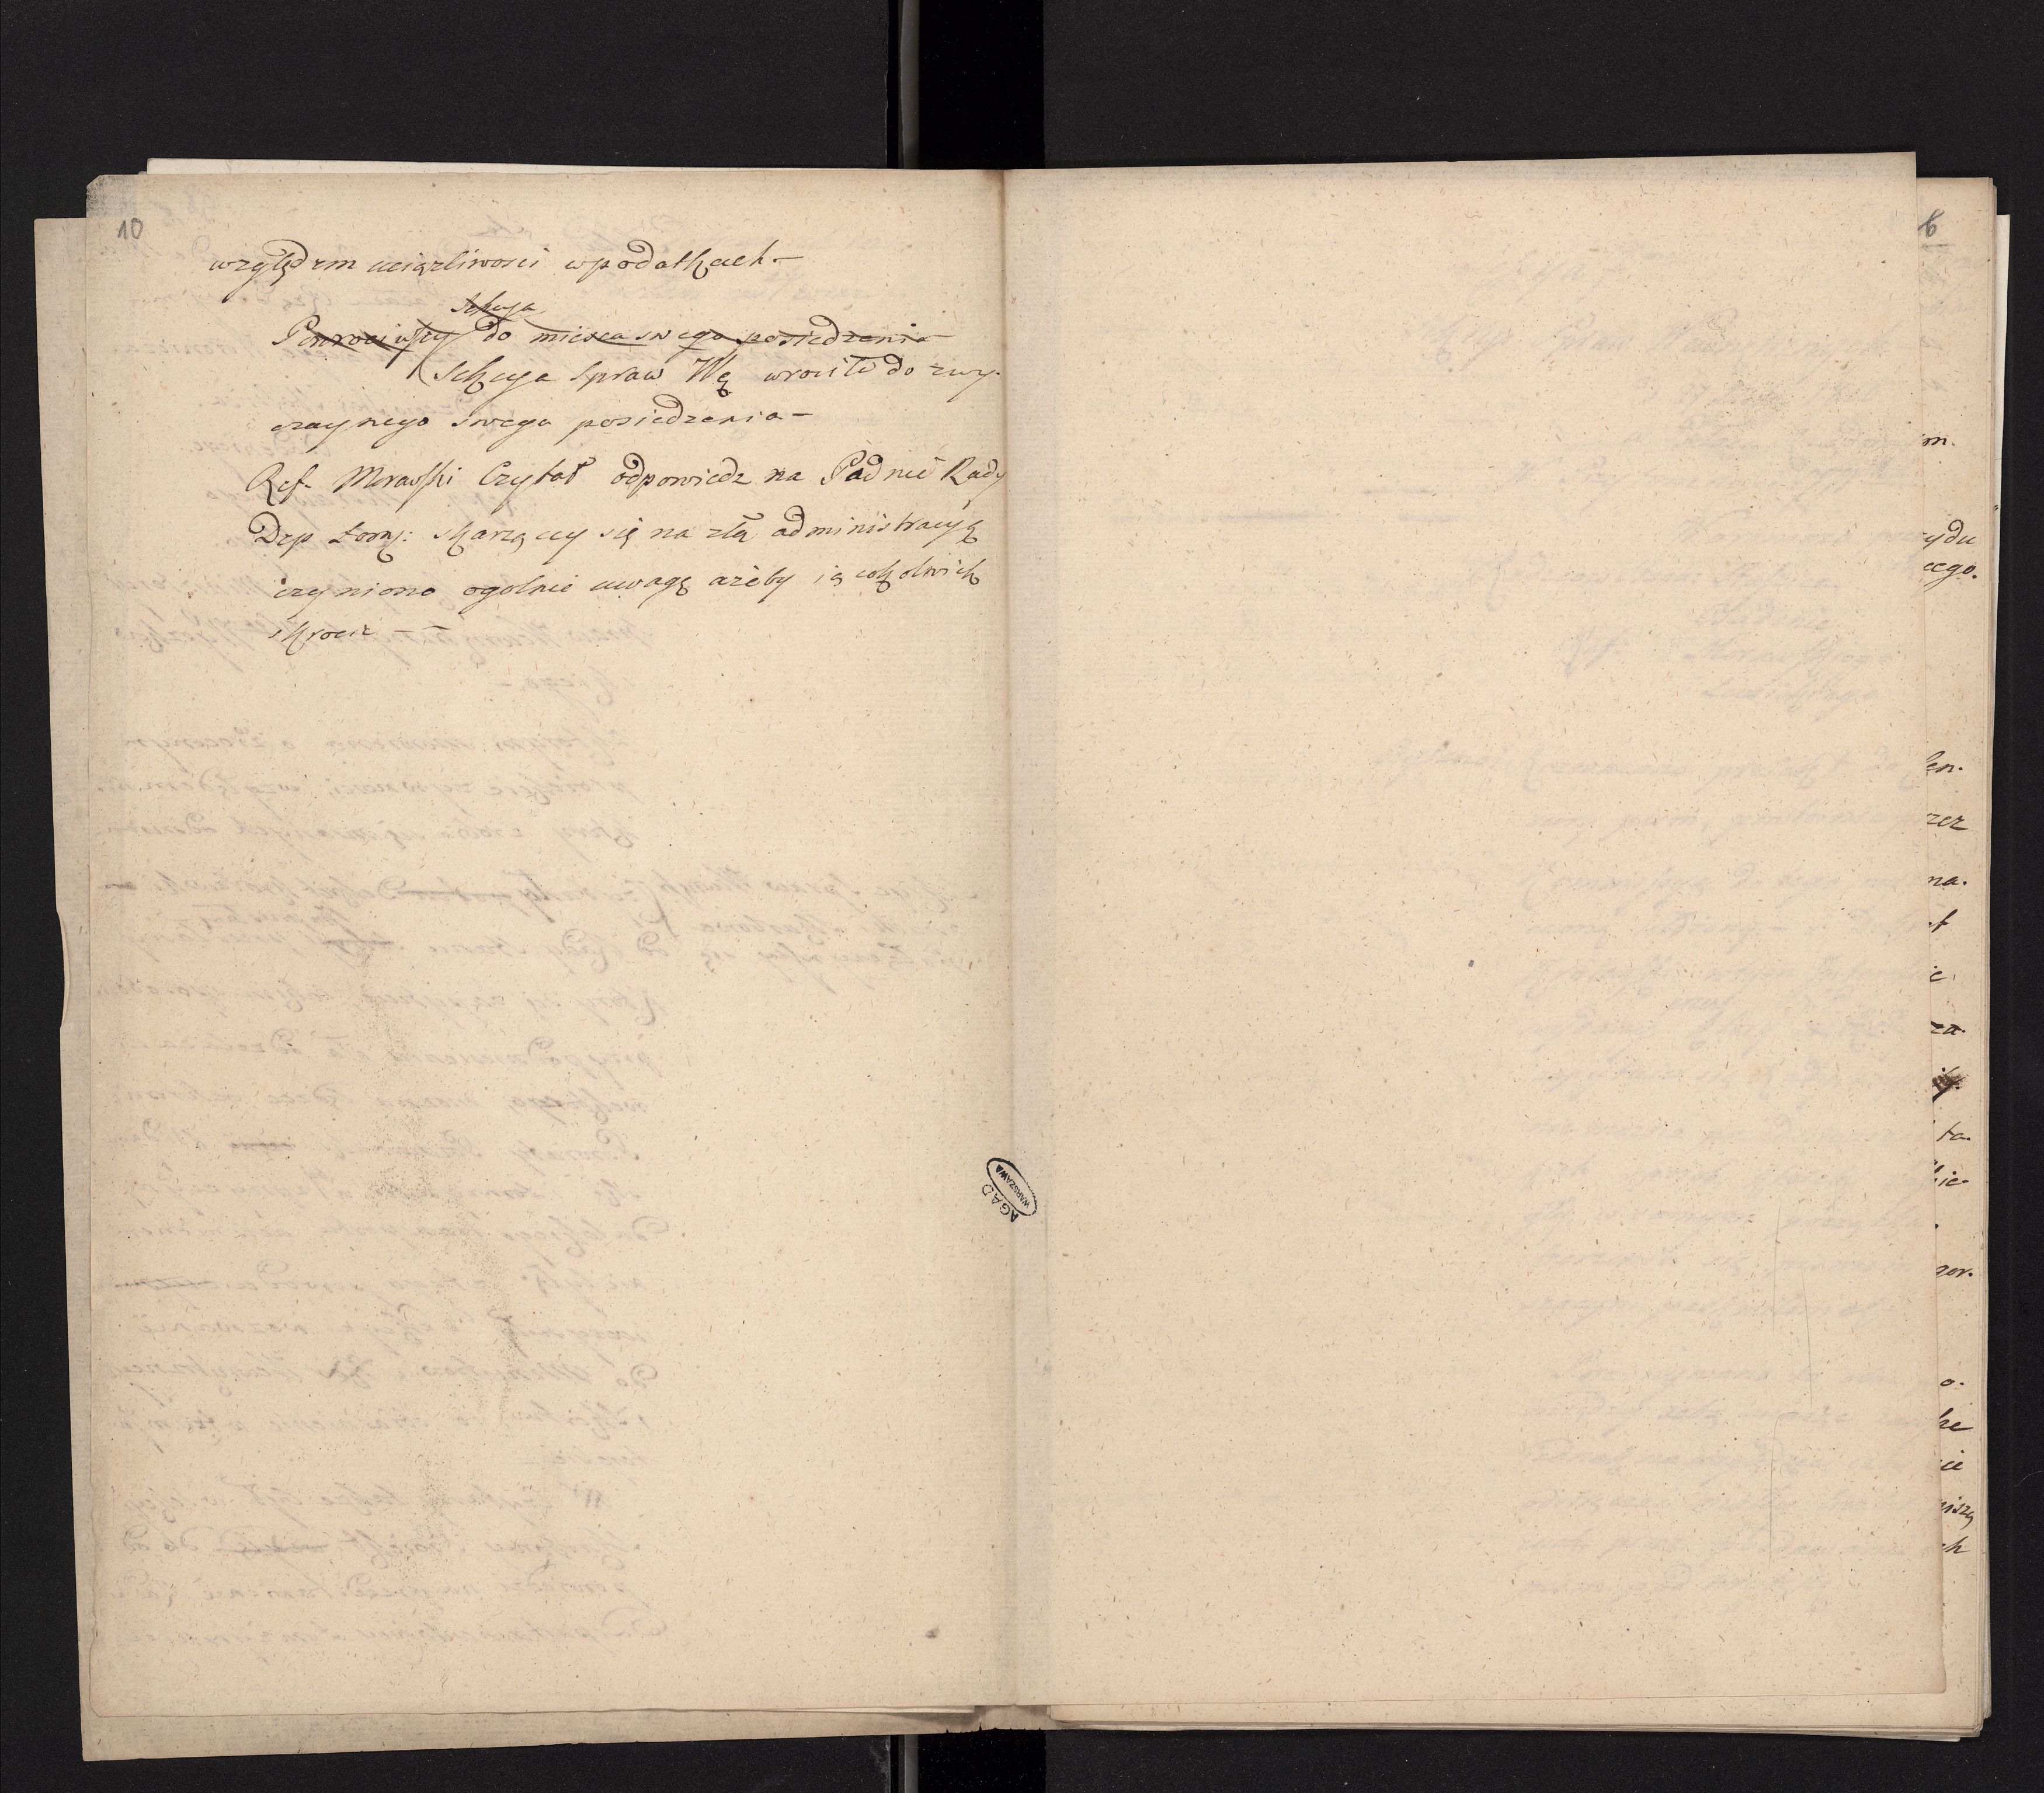 10
względem uciązliwosci w podatkach –
Sekcya
Powrociwszy do miesca swego posiedzenia
Sekcya Spraw We wrociła do zwy-
czaynego swego posiedzenia –
Ref. Morawski Czytał odpowiedz na Podnie Rady
Dep Łom: skarzący się na złą administracyą
czyniono ogolnie uwagę ażeby ią cokolwiek
skrocic – –
AGAD
WARSZAWA
6
m.
ydu
cego.
len.
rzez
na.
t
ie
za.
ta.
lic-
nor.
o.
ke
cie
niszą
ch